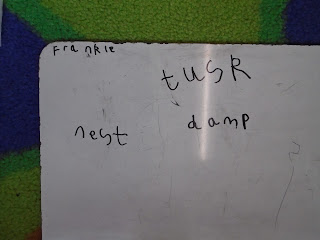 Frankie
tusk
nest damp